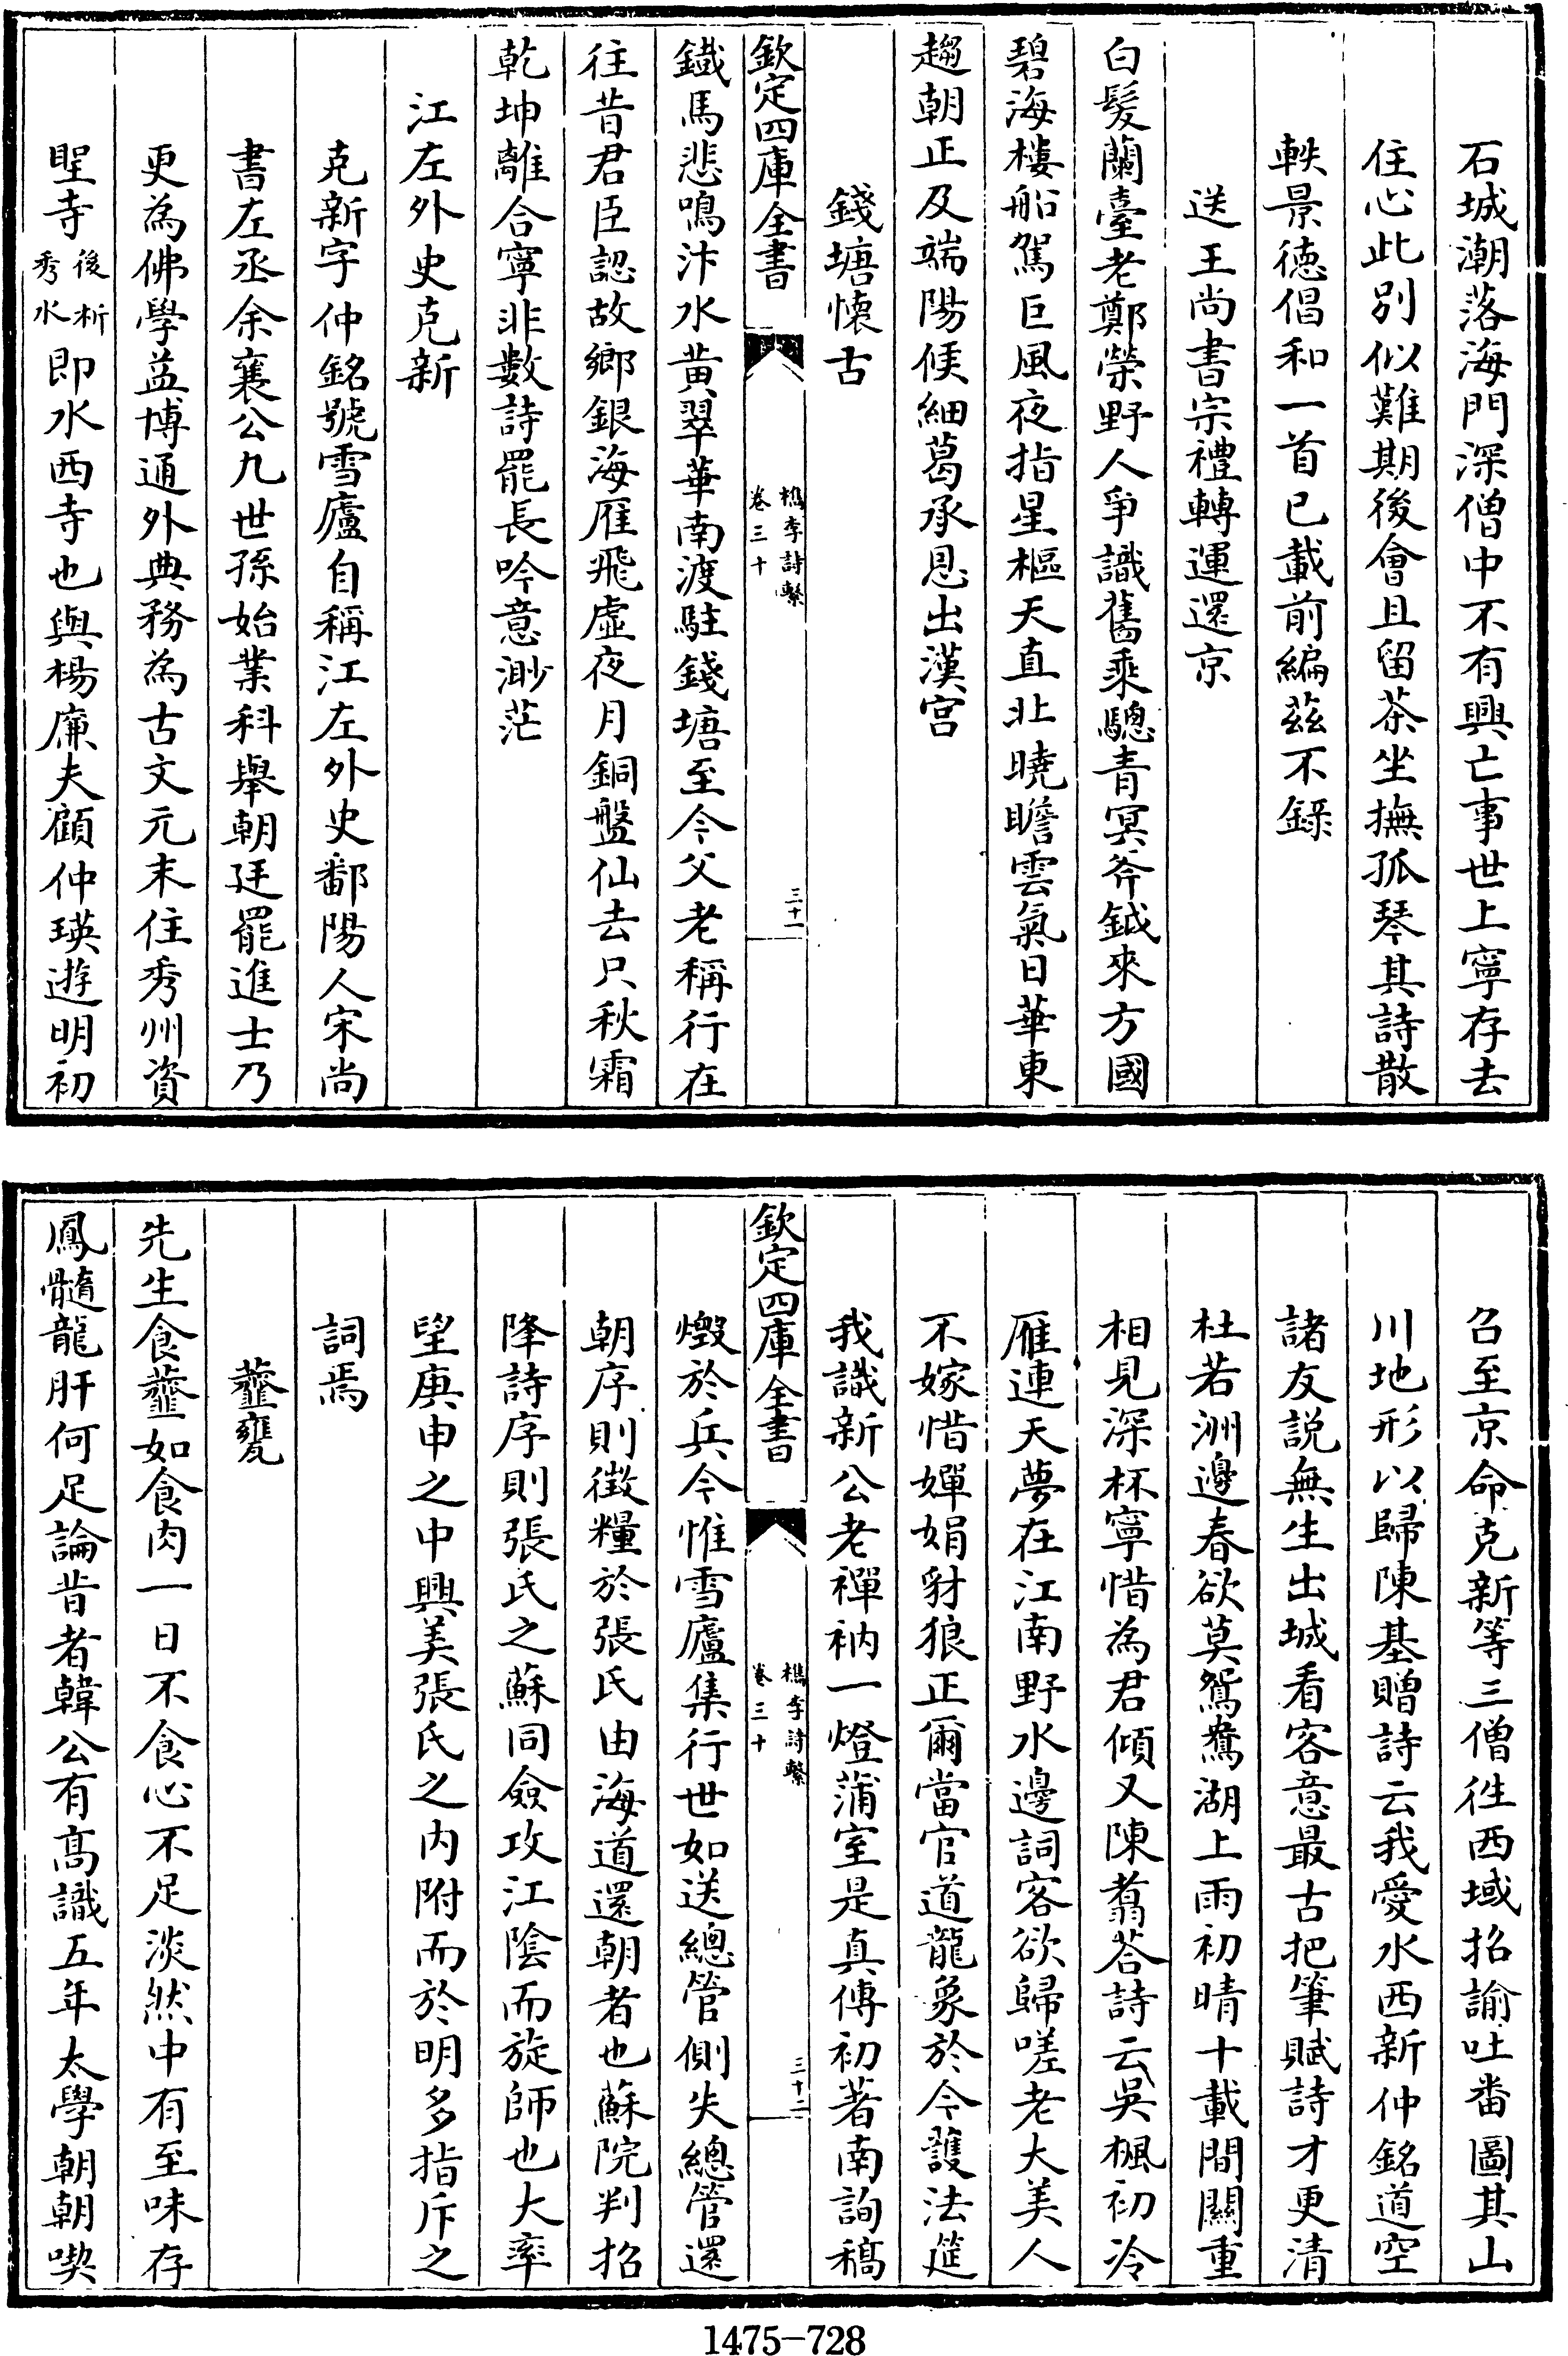 石城潮落海門深僧中不有興亡事世上寧存去
住心此别似難期後會且留茶坐撫孤琴其詩散
軼景德倡和一首已載前編茲不錄
送王尚書宗禮轉運還京
白髮蘭臺老鄭榮野人爭識舊乘驄青冥斧鉞來方國
碧海樓船駕巨風夜指星樞天直北曉瞻雲氣日華東
趨朝正及端陽候細葛承恩出漢宫
錢塘懷古
欽定四庫全書
檇李詩繫
卷三十
三十一
鐵馬悲鳴汴水黄翠華南渡駐錢塘至今父老稱行在
往昔君臣認故鄉銀海雁飛虚夜月銅盤仙去只秋霜
乾坤離合寧非數詩罷長吟意渺茫
江左外史克新
克新字仲銘號雪廬自稱江左外史鄱陽人宋尚
書左丞余襄公九世孫始業科舉朝廷罷進士乃
更為佛學益博通外典務為古文元末住秀州資
聖寺後析秀水即水西寺也與楊廉夫顧仲瑛遊明初
召至京命克新等三僧往西域招諭吐番圖其山
川地形以歸陳基贈詩云我愛水西新仲銘道空
諸友説無生出城看客意最古把筆賦詩才更清
杜若洲邊春欲莫鴛鴦湖上雨初晴十載間關重
相見深杯寧惜為君傾又陳翥荅詩云吳楓初冷
雁連天夢在江南野水邊詞客欲歸嗟老大美人
不嫁惜嬋娟豺狼正爾當官道龍象於今護法筵
我識新公老禪衲一燈蒲室是真傳初著南詢稿
欽定四庫全書
檇李詩繫
卷三十
三十二
燬於兵今惟雪廬集行世如送總管側失總管還
朝序則徵糧於張氏由海道還朝者也蘇院判招
降詩序則張氏之蘇同僉攻江陰而旋師也大率
望庚申之中興美張氏之内附而於明多指斥之
詞焉
虀甕
先生食虀如食肉一日不食心不足淡然中有至味存
鳳髓龍肝何足論昔者韓公有髙識五年太學朝朝喫
1475-728